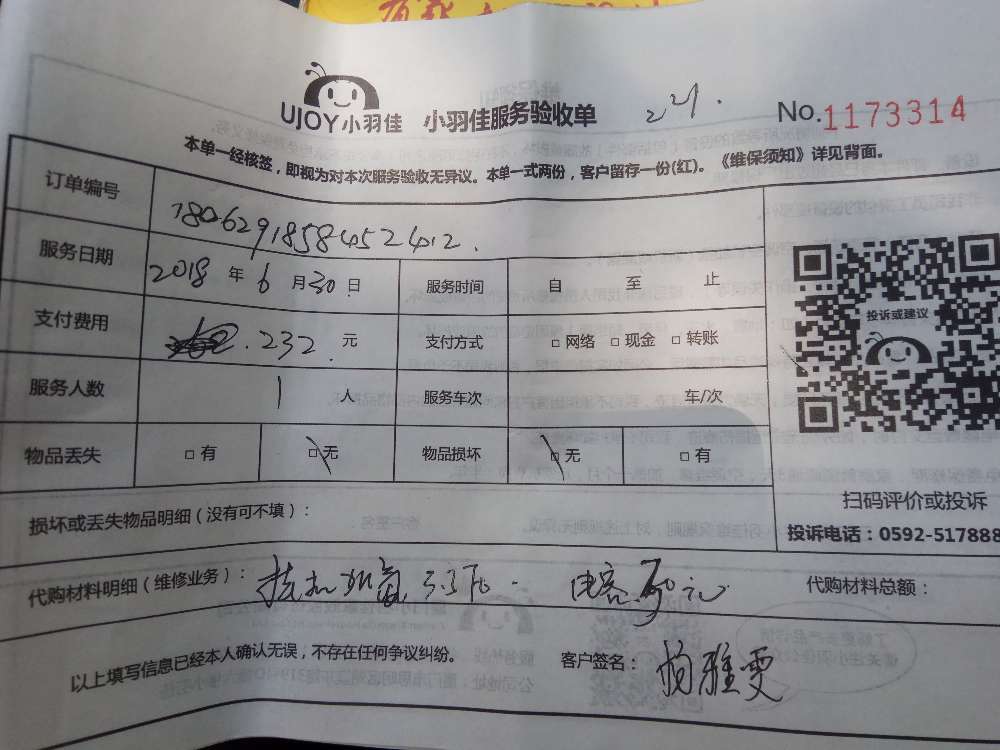 UJOY小羽佳 小羽佳服务验收单 No.1173314
本单一经核签，即视为对本次服务验收无异议。本单一式两份，客户留存一份(红)。《维保须知》详见背面。
订单编号 180629185845​2412.
服务日期 2018 年 6 月 30 日 服务时间 自 至 止
支付费用 232. 元 支付方式 □ 网络 □ 现金 □ 转账
服务人数 1 人 服务车次 车/次
物品丢失 □ 有 □ 无 物品损坏 □ 无 □ 有
投诉或建议
扫码评价或投诉
投诉电话：0592-517888
损坏或丢失物品明细（没有可不填）：
代购材料明细（维修业务）： 电容 元 代购材料总额：
以上填写信息已经本人确认无误，不存在任何争议纠纷。 客户签名： 杨雅雯